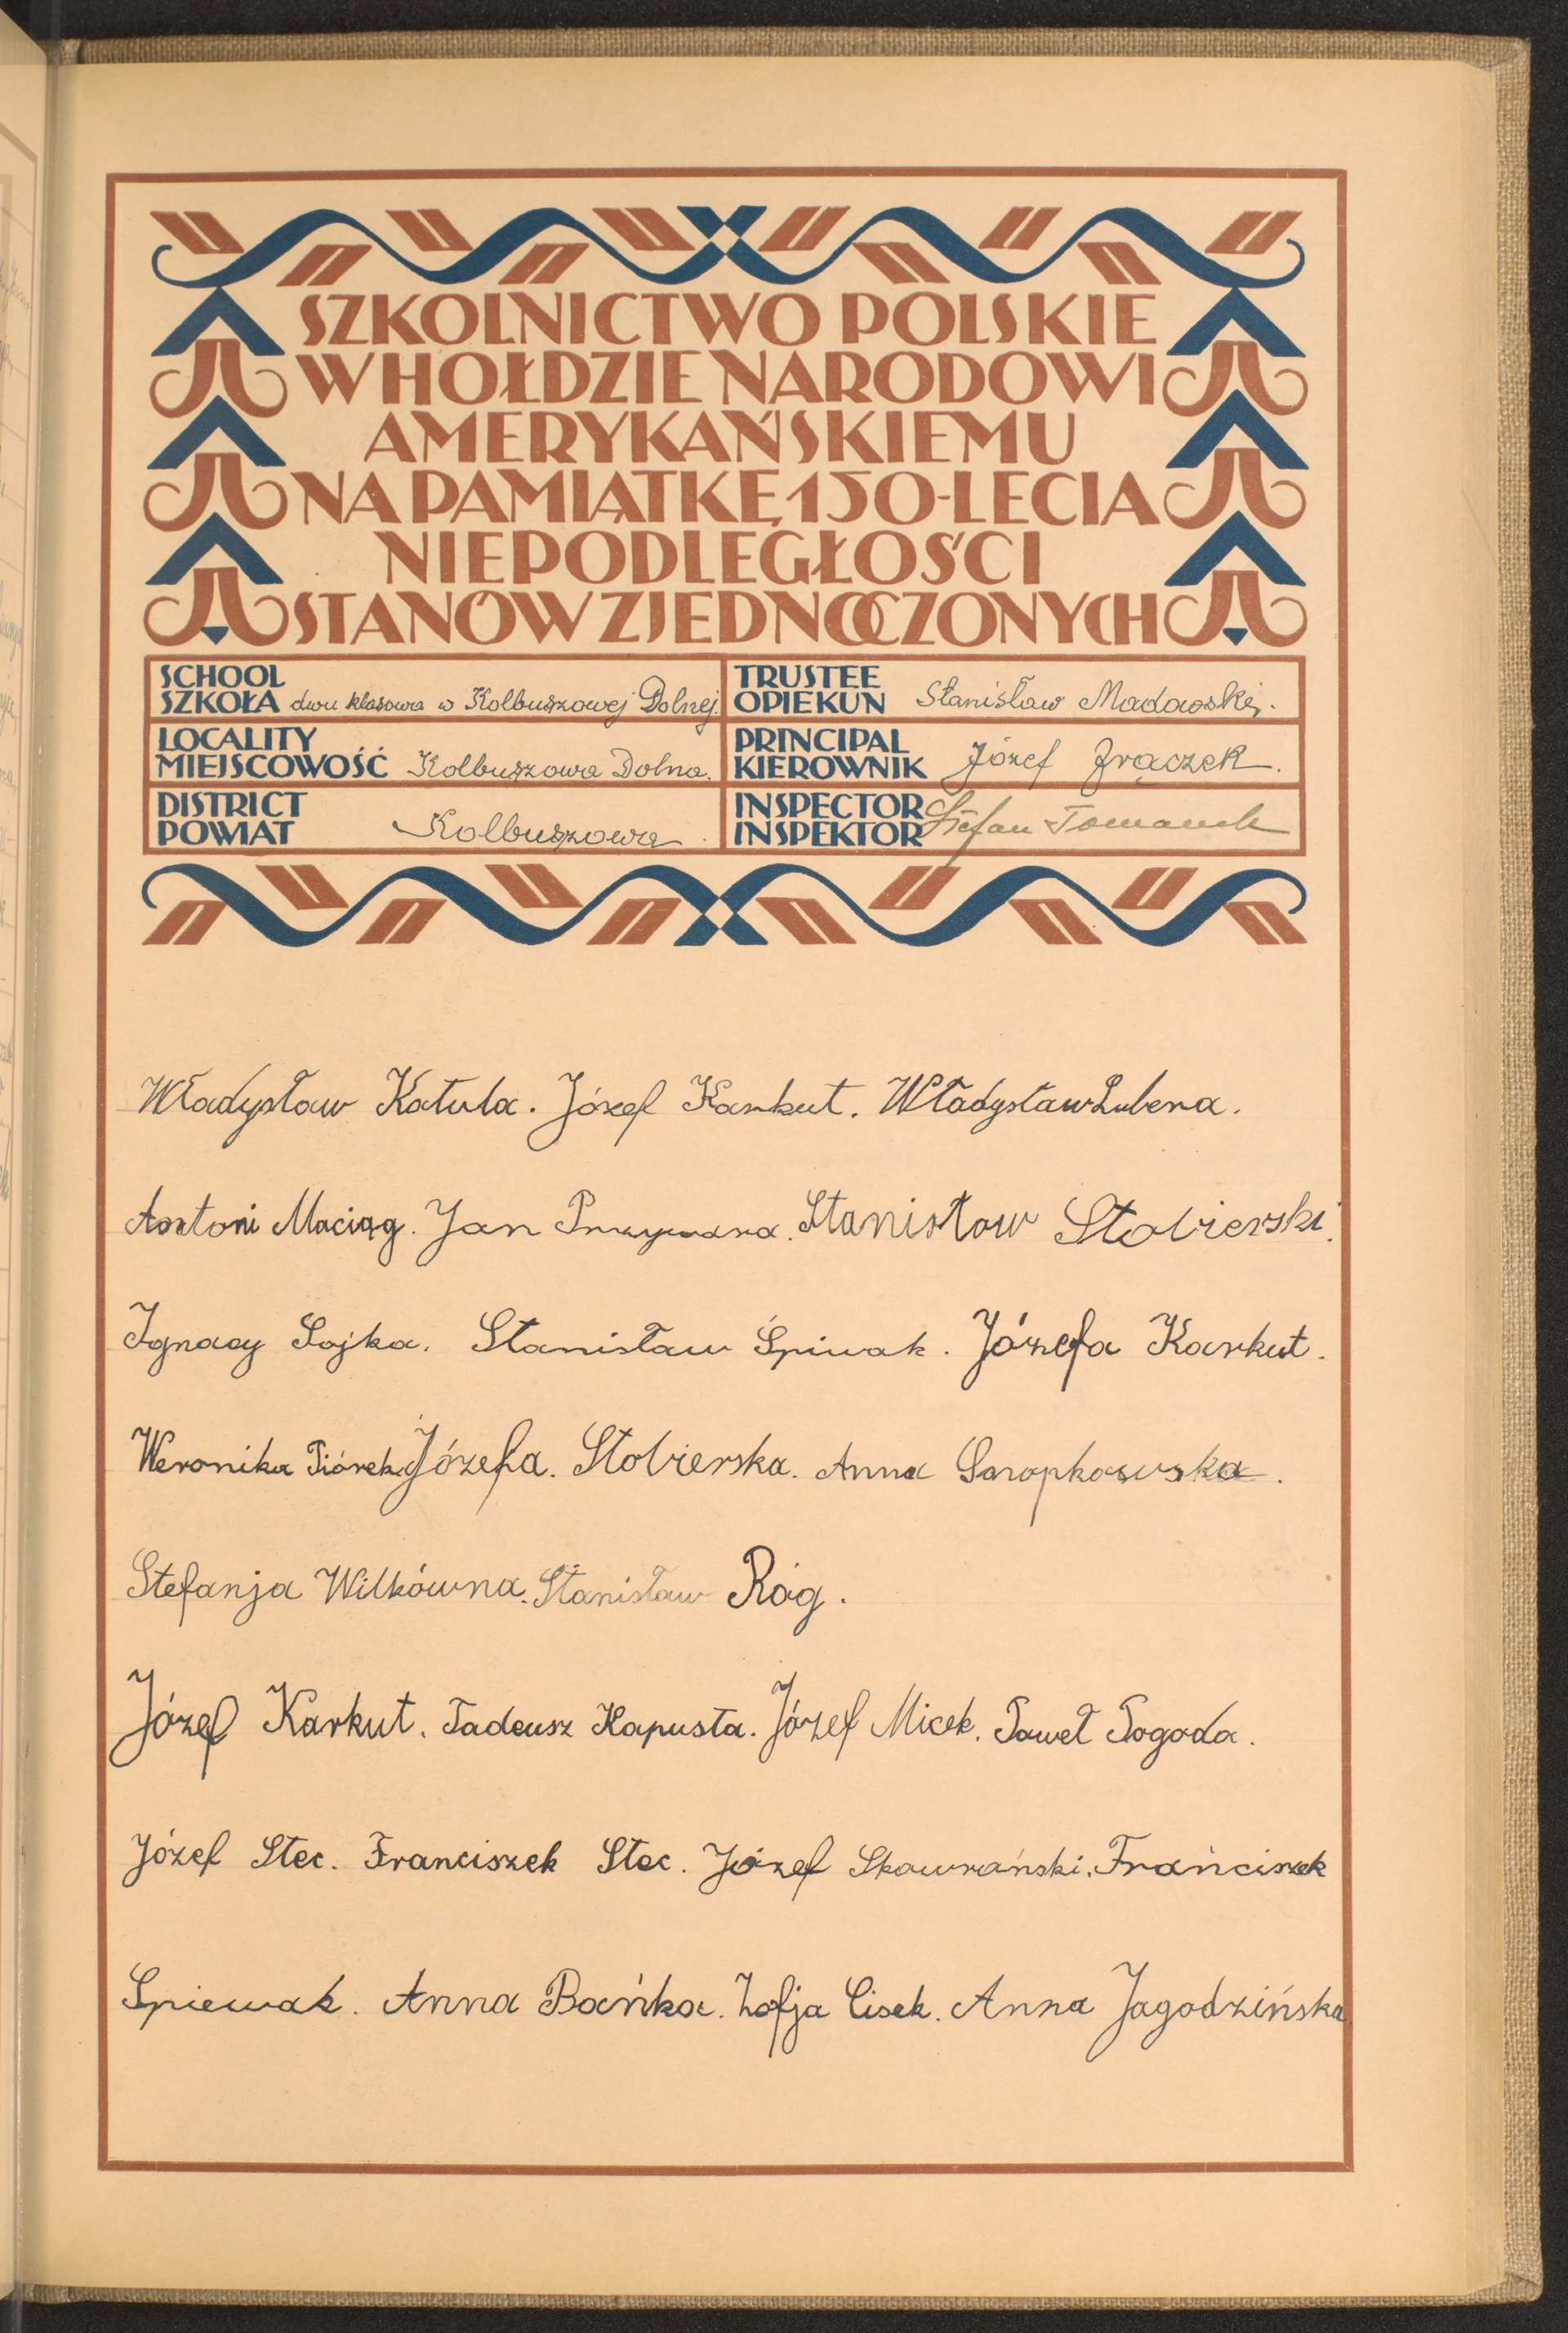 SZKOLNICTWO POLSKIE
W HOŁDZIE NARODOWI
AMERYKAŃSKIEMU
NA PAMIĄTKĘ 150-LECIA
NIEPODLEGŁOŚCI
STANÓW ZJEDNOCZONYCH
SCHOOL
SZKOŁA dwu klasowa w Kolbuszowej Dolnej.
TRUSTEE
OPIEKUN Stanisław
LOCALITY
MIEJSCOWOŚĆ Kolbuszowa Dolna.
PRINCIPAL
KIEROWNIK Józef Zrączek.
DISTRICT
POWIAT Kolbuszowa.
INSPECTOR
INSPEKTOR Stefan Tomanek
Władysław Katula. Józef Karkut. Władysław Lubera.
Antoni Maciąg. Jan Przywara. Stanisław Stobierski.
Ignacy Sojka. Stanisław Śpiwak. Józefa Karkut.
Weronika Piórek Józefa. Stobierska. Anna
Stefanja Wilkówna. Stanisław Róg.
Józef Karkut. Tadeusz Kapusta. Józef Micek. Paweł Pogoda.
Józef Stec. Franciszek Stec. Józef Skowrański. Frańciszek
Spiewak. Anna Bańka. Zofja Cisek. Anna Jagodzińska